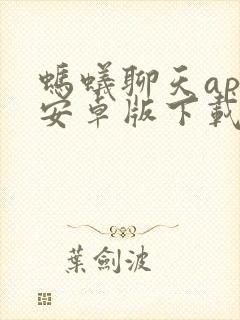 螞蟻聊天ap
安卓版下載
葉劍波